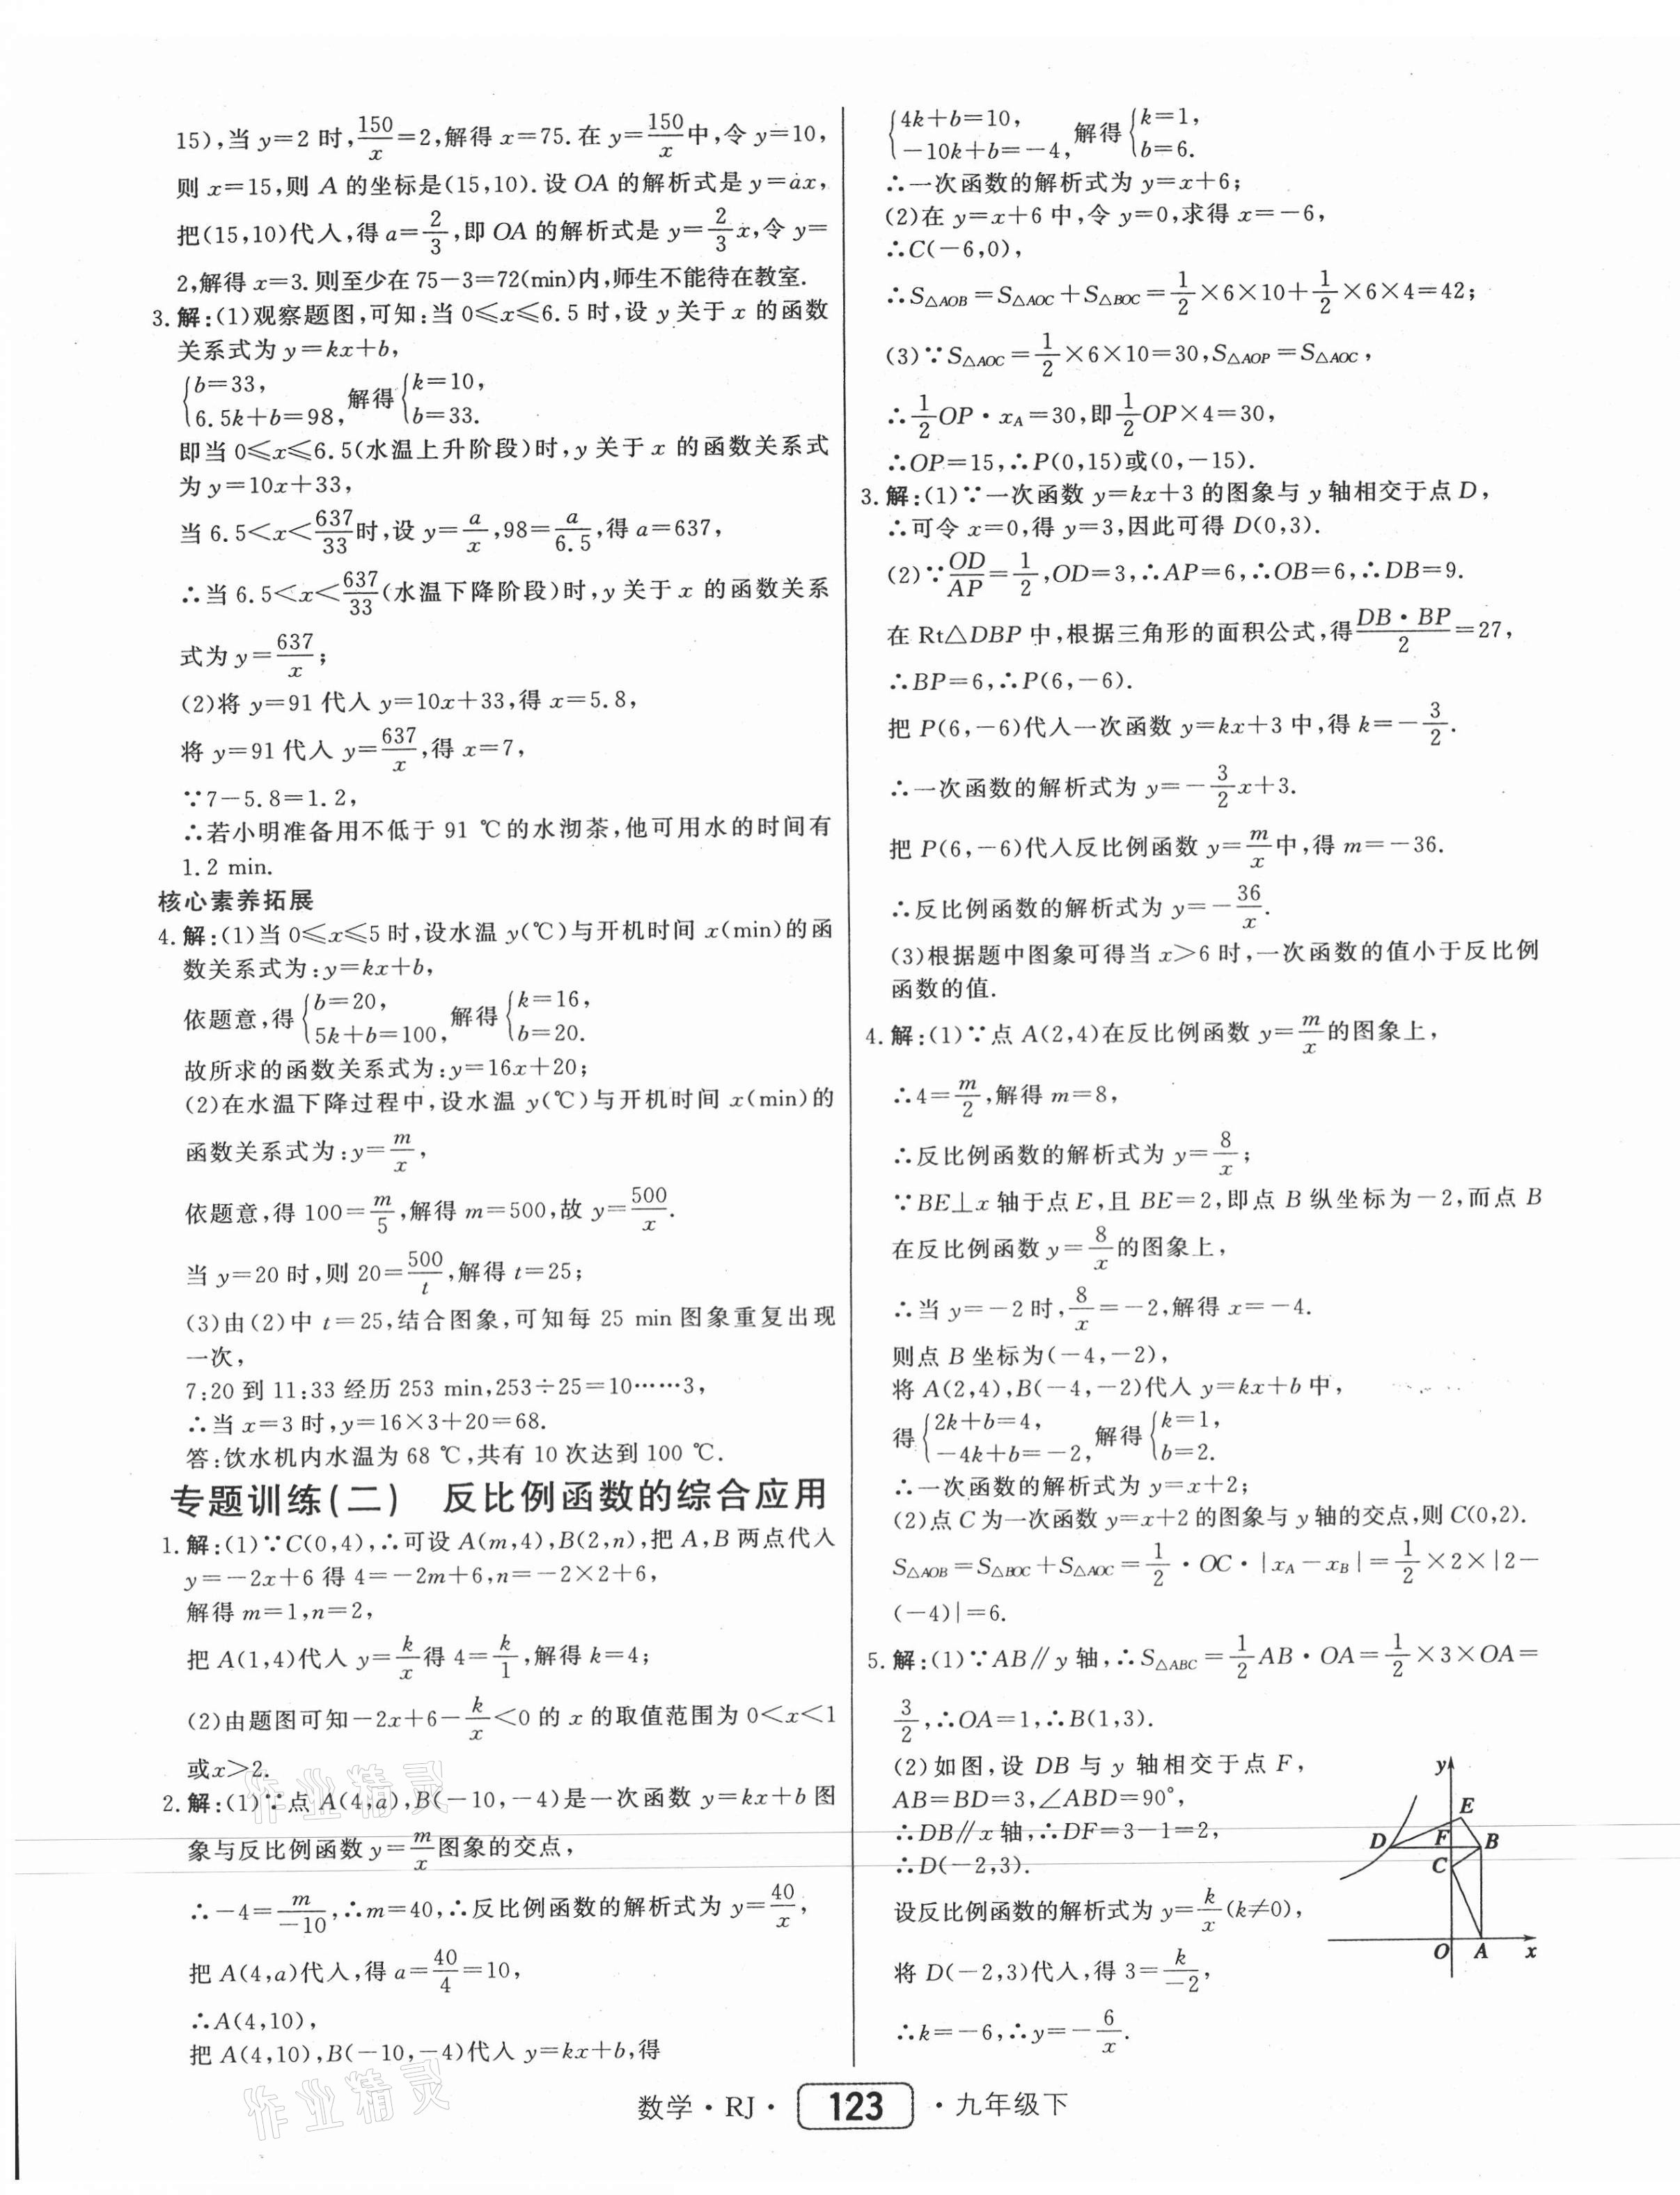 15),当 y=2 时,150/x=2,解得 x=75.在 y=150/x中,令 y=10,
则 x=15,则 A 的坐标是(15,10).设 OA 的解析式是 y=ax,
把(15,10)代入,得 a=2/3,即 OA 的解析式是 y=2/3x,令 y=
2,解得 x=3.则至少在 75-3=72(min)内,师生不能待在教室.
3.解:(1)观察题图,可知:当 0≤x≤6.5 时,设 y 关于 x 的函数
关系式为 y=kx+b,
{b=33, 6.5k+b=98, 解得{k=10, b=33.
即当 0≤x≤6.5(水温上升阶段)时,y 关于 x 的函数关系式
为 y=10x+33,
当 6.5<x<637/33时,设 y=a/x,98=a/6.5,得 a=637,
∴当 6.5<x<637/33(水温下降阶段)时,y 关于 x 的函数关系
式为 y=637/x;
(2)将 y=91 代入 y=10x+33,得 x=5.8,
将 y=91 代入 y=637/x,得 x=7,
∵7-5.8=1.2,
∴若小明准备用不低于 91 ℃的水沏茶,他可用水的时间有
1.2 min.
核心素养拓展
4.解:(1)当 0≤x≤5 时,设水温 y(℃)与开机时间 x(min)的函
数关系式为:y=kx+b,
依题意,得{b=20, 5k+b=100, 解得{k=16, b=20.
故所求的函数关系式为:y=16x+20;
(2)在水温下降过程中,设水温 y(℃)与开机时间 x(min)的
函数关系式为:y=m/x,
依题意,得 100=m/5,解得 m=500,故 y=500/x.
当 y=20 时,则 20=500/t,解得 t=25;
(3)由(2)中 t=25,结合图象,可知每 25 min 图象重复出现
一次,
7:20 到 11:33 经历 253 min,253÷25=10……3,
∴当 x=3 时,y=16×3+20=68.
答:饮水机内水温为 68 ℃,共有 10 次达到 100 ℃.
专题训练(二) 反比例函数的综合应用
1.解:(1)∵C(0,4),∴可设 A(m,4),B(2,n),把 A,B 两点代入
y=-2x+6 得 4=-2m+6,n=-2×2+6,
解得 m=1,n=2,
把 A(1,4)代入 y=k/x得 4=k/1,解得 k=4;
(2)由题图可知-2x+6-k/x<0 的 x 的取值范围为 0<x<1
或x>2.
2.解:(1)∵点 A(4,a),B(-10,-4)是一次函数 y=kx+b 图
象与反比例函数 y=m/x图象的交点,
∴-4=m/-10,∴m=40,∴反比例函数的解析式为 y=40/x,
把 A(4,a)代入,得 a=40/4=10,
∴A(4,10),
把 A(4,10),B(-10,-4)代入 y=kx+b,得
{4k+b=10, -10k+b=-4, 解得{k=1, b=6.
∴一次函数的解析式为 y=x+6;
(2)在 y=x+6 中,令 y=0,求得 x=-6,
∴C(-6,0),
∴S△AOB=S△AOC+S△BOC=1/2×6×10+1/2×6×4=42;
(3)∵S△AOC=1/2×6×10=30,S△AOP=S△AOC,
∴1/2OP·xA=30,即1/2OP×4=30,
∴OP=15,∴P(0,15)或(0,-15).
3.解:(1)∵一次函数 y=kx+3 的图象与 y 轴相交于点 D,
∴可令 x=0,得 y=3,因此可得 D(0,3).
(2)∵OD/AP=1/2,OD=3,∴AP=6,∴OB=6,∴DB=9.
在 Rt△DBP 中,根据三角形的面积公式,得DB·BP/2=27,
∴BP=6,∴P(6,-6).
把 P(6,-6)代入一次函数 y=kx+3 中,得 k=-3/2.
∴一次函数的解析式为 y=-3/2x+3.
把 P(6,-6)代入反比例函数 y=m/x中,得 m=-36.
∴反比例函数的解析式为 y=-36/x.
(3)根据题中图象可得当 x>6 时,一次函数的值小于反比例
函数的值.
4.解:(1)∵点 A(2,4)在反比例函数 y=m/x的图象上,
∴4=m/2,解得 m=8,
∴反比例函数的解析式为 y=8/x;
∵BE⊥x 轴于点 E,且 BE=2,即点 B 纵坐标为-2,而点 B
在反比例函数 y=8/x的图象上,
∴当 y=-2 时,8/x=-2,解得 x=-4.
则点 B 坐标为(-4,-2),
将 A(2,4),B(-4,-2)代入 y=kx+b 中,
得{2k+b=4, -4k+b=-2, 解得{k=1, b=2.
∴一次函数的解析式为 y=x+2;
(2)点 C 为一次函数 y=x+2 的图象与 y 轴的交点,则 C(0,2).
S△AOB=S△BOC+S△AOC=1/2·OC·|xA-xB|=1/2×2×|2-
(-4)|=6.
5.解:(1)∵AB∥y 轴,∴S△ABC=1/2AB·OA=1/2×3×OA=
3/2,∴OA=1,∴B(1,3).
(2)如图,设 DB 与 y 轴相交于点 F,
AB=BD=3,∠ABD=90°,
∴DB∥x 轴,∴DF=3-1=2,
∴D(-2,3).
设反比例函数的解析式为 y=k/x(k≠0),
将 D(-2,3)代入,得 3=k/-2,
∴k=-6,∴y=-6/x.
y
E
D
F
B
C
O
A
x
数学·RJ· 123 ·九年级下
作业精灵
作业精灵